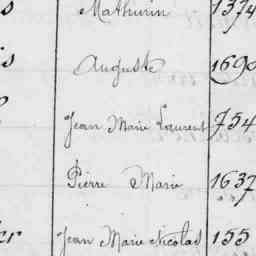 s Mathurin 1374
is Auguste 1690
Jean Marie Laurent 754
Pierre Marie 1637
er Jean Marie Nicolas 155